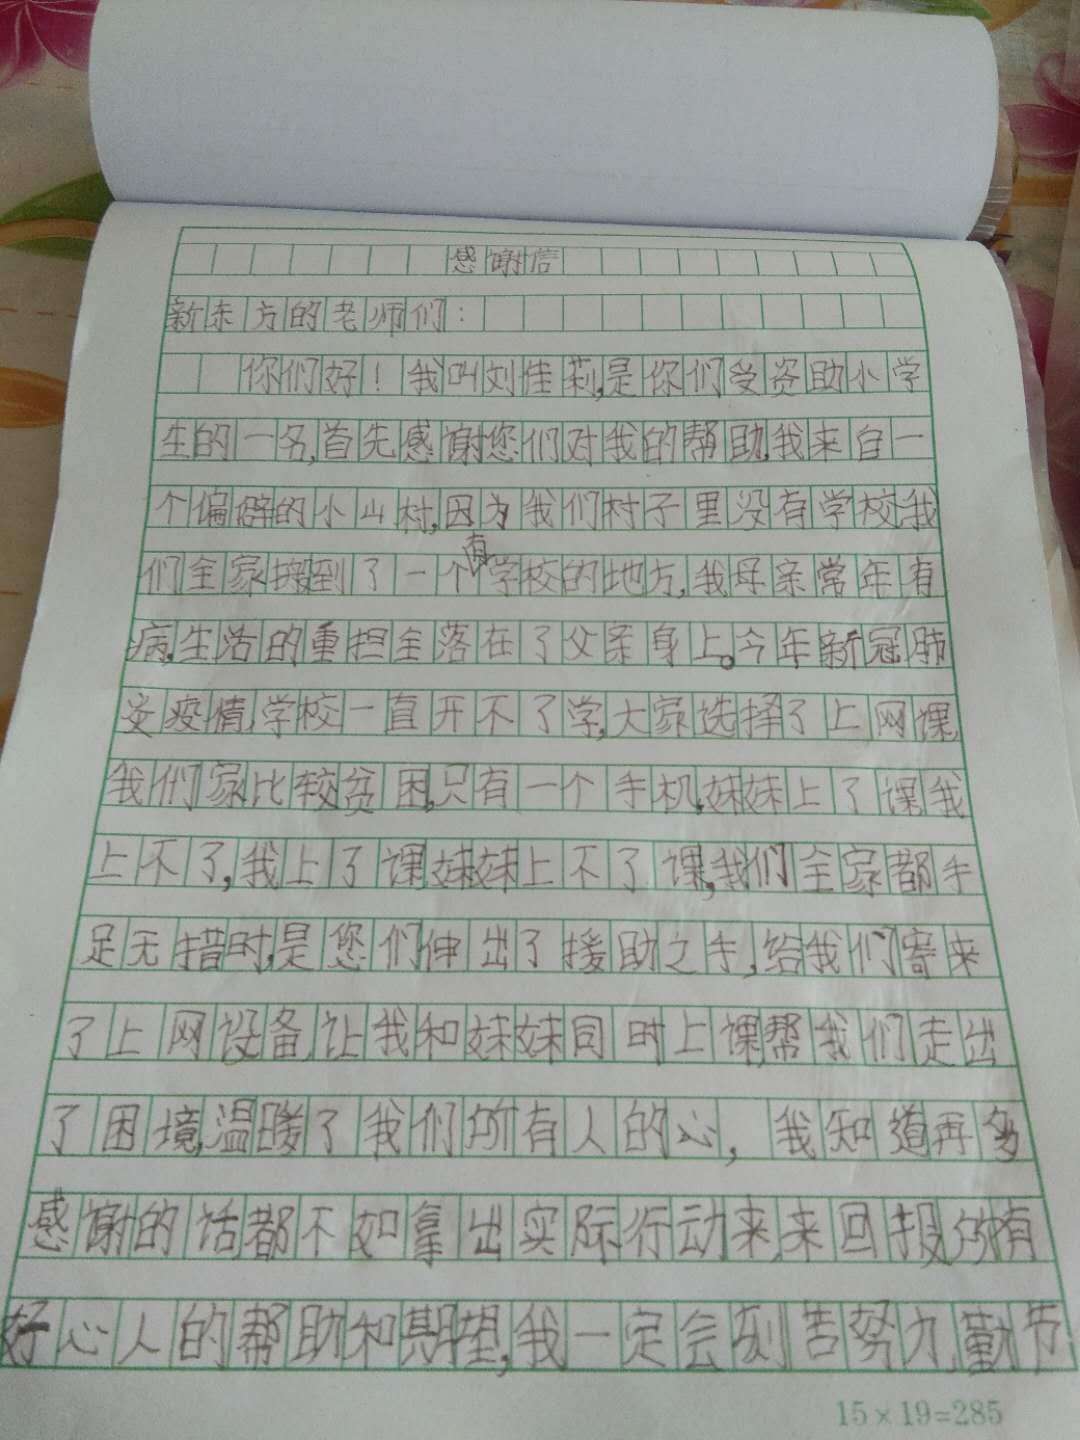 感谢信
新东方的老师们：
你们好！我叫刘佳莉,是你们受资助小学
生的一名,首先感谢您们对我的帮助,我来自一
个偏僻的小山村,因为我们村子里没有学校,我
们全家搬到了一个有学校的地方,我母亲常年有
病,生活的重担全落在了父亲身上。今年新冠肺
炎疫情,学校一直开不了学,大家选择了上网课
我们家比较贫困,只有一个手机,妹妹上了课,我
上不了,我上了课,妹妹上不了课,我们全家都手
足无措时,是您们伸出了援助之手,给我们寄来
了上网设备,让我和妹妹同时上课,帮我们走出
了困境,温暖了我们所有人的心,我知道再多
感谢的话都不如拿出实际行动来,来回报所有
好心人的帮助和期望,我一定会刻苦努力,勤节
15×19=285